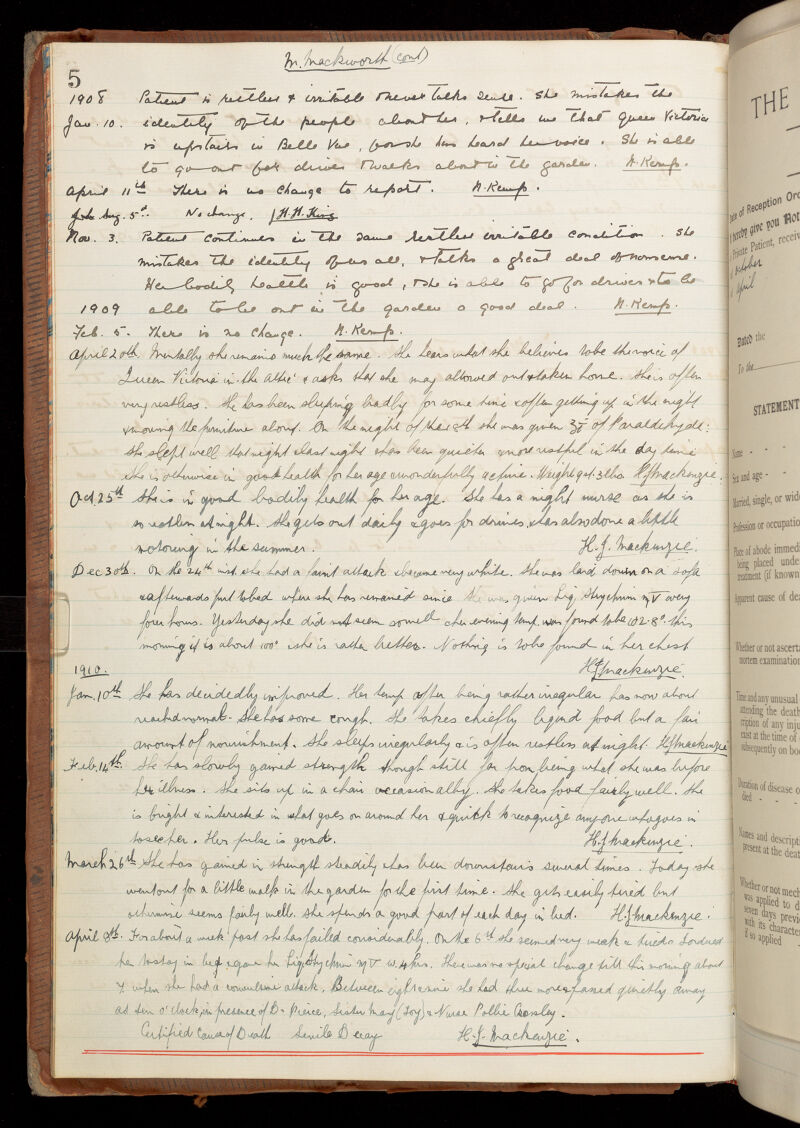 M. Mackworth (cont)
5
1908 Patient is restless & irritable & never talks sense. She mistakes the
Jan. 10. identity of the people about her, & tells me that Queen Victoria
is upstairs in Belle Vue, for she has heard her voice. She is able
to go out for drives & walks about in the garden. N. Kemp.
April 11th There is no change to report. N. Kemp.
Aug. 5th. No change. H. H. King
Nov. 3. Patient continues in the same restless irritable condition. She
mistakes the identity of us all, & talks a great deal of nonsense.
Her bodily health is good, & she is able to go for drives & to be
1909 able to be out in the garden a good deal. N. Kemp.
Feb. 5. There is no change. N. Kemp.
April 20th. Mentally she remains much the same. She hears what she believes to be the voice of
Queen Victoria in the attic & asks that she may allowed out & taken home. She is often
very restless. She has been sleeping badly for some time & often getting up in the night
& moving the furniture about. On the night of the 18th she was given of Paraldehyde:
she slept well that night & last night & has been quieter & more restful in the day time
She is otherwise in good health for her age & wonderfully active. Weight 9st. 3lbs. H. J. Mackenzie.
Oct. 25th She is in good bodily health for her age. She has a night nurse as she is
so restless at night. She gets out daily & goes for drives, & has also done a little
motoring in the summer. H. J. Mackenzie.
Dec 30th. On the 24th inst. she had a faint attack & became very white. She was laid down on a sofa
& afterwards put to bed where she has remained since. She was given Liq. Strychnin ♏V every
four hours. Yesterday she did not seem so well & her evening temp. was found to be 102.8°. This
morning it is about 100° & she is rather better. Nothing is to be found in her chest
1910. H. J. Mackenzie.
Jan. 10th She has decidedly improved. Her temp. after being rather irregular has now about
reached normal. She has some cough. She takes chiefly liquid food but a fair
amount of nourishment. She sleeps irregularly & is often restless at night. H. J. Mackenzie
Feb. 14th. She has slowly gained strength though still far from being what she was before
her illness. She sits up in a chair occasionally. She takes food fairly well. She
is bright & interested in what goes on around her & quick to recognize anyone who goes in
to see her. Her pulse is good. H. J. Mackenzie.
March 26th She has gained in strength steadily & has been downstairs several times. Today she
went out for a little walk in the garden for the first time. She gets easily tired but
otherwise seems fairly well. She spends a good part of each day in bed. H. J. Mackenzie.
April 8th. For about a week past she has failed considerably. On the 6th she seemed very weak & tired. I ordered
her to stay in bed & gave her Liq. Strychnin ♏V 4 hrs. There was no special change till this morning about
7. when she had a convulsive attack. Between eight & nine she had three more & passed quietly away
at ten o'clock, in presence of Dr Pierce, Sister Mary (Foy) & Nurse Pollie Crossley.
Certified Cause of Death Senile Decay H. J. Mackenzie.
THE
Date of Reception Ord
I hereby give you Not
Private Patient, receiv
October
April
Dated the
To the
STATEMENT
Name - - -
Sex and age - -
Married, single, or wid
Profession or occupatio
Place of abode immedi
being placed unde
treatment (if known
Apparent cause of dea
Whether or not ascerta
mortem examination
Time and any unusual
attending the death
cription of any inju
exist at the time of
subsequently on bo
Duration of disease o
died - -
Names and descripti
present at the deat
Whether or not mech
was applied to d
seven days previ
with its character
if so applied -